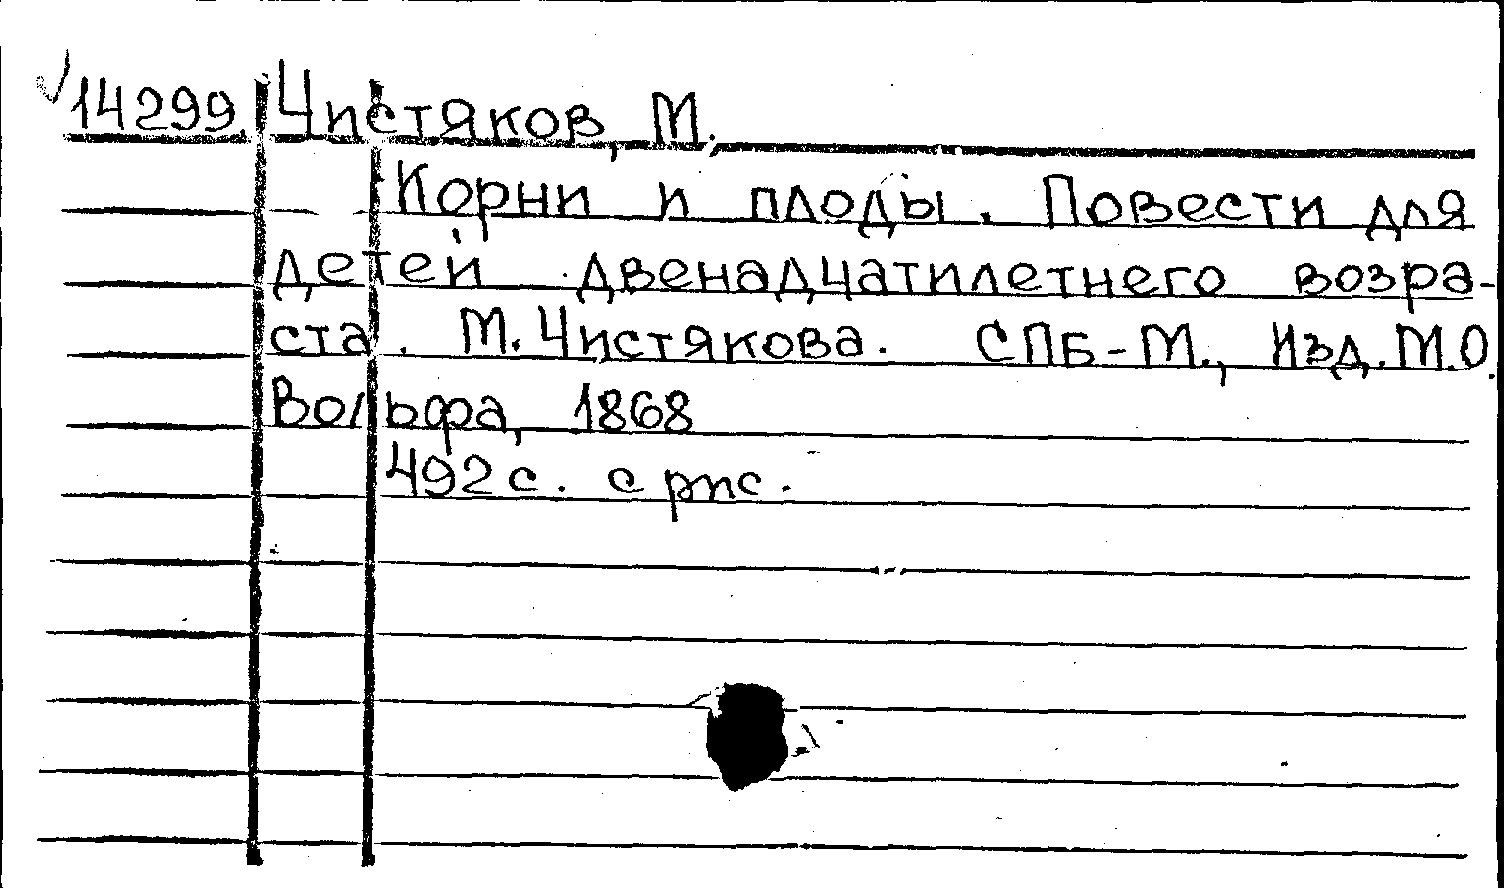 14299. Чистяков, М.
Корни и плоды. Повести для
детей двенадчатилетнего возра-
ста. М. Чистякова. СПБ-М., Изд. М.О.
Вольфа, 1868
492 с. с рис.